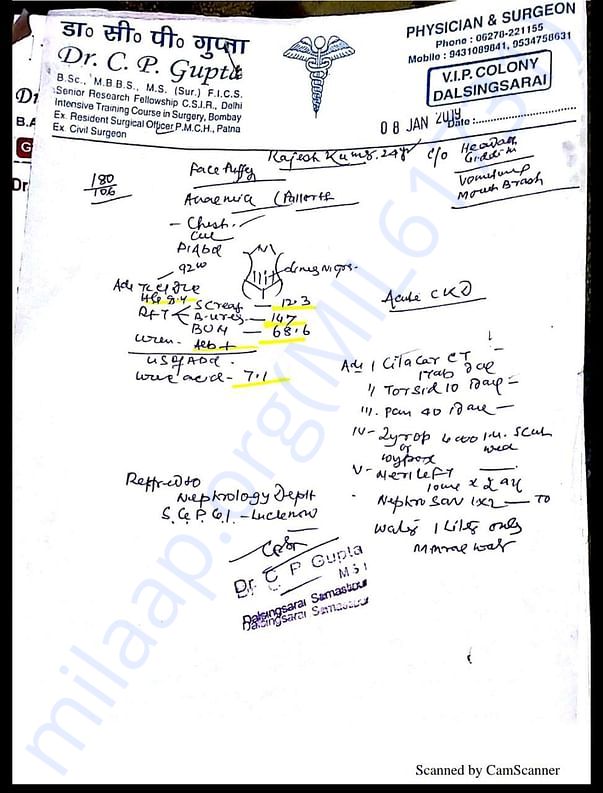 डा० सी० पी० गुप्ता
Dr. C. P. Gupta
B.Sc., M.B B.S., M.S. (Sur.) F.I.C.S.
Senior Research Fellowship C.S.I.R., Delhi
Intensive Training Course in Surgery, Bombay
Ex. Resident Surgical Officer P.M.C.H., Patna
Ex. Civil Surgeon
PHYSICIAN & SURGEON
Phone : 06278-221155
Mobile : 9431089841, 9534758631
V.I.P. COLONY
DALSINGSARAI
08 JAN 2019
Date :
Rajesh Kumar 24yr
c/o Headach
Giddin
Vometing
Mouth Brash
180
106
Face Puffy
Anaemia (Pallor++
- Chest
P/Abd
Adv
Hb 8.4
RFT
S creat — 12.3
B. urea — 147
BUN — 68.6
Urin - Alb +
USG Abd -
Uric acid - 7.1
Acute CKD
Adv I Cilacar CT
1 tab day
II Torsid 10
III. Pan 40
IV - Zyrop 4000 I.U. S.C
V -
10ml x 2
Nephro SAV 1x2
Water 1 liter only
Reffred to
Nephrology Deptt
S.G.P.G.I. - Lucknow
Dr. C P Gupta
M S I
Dalsingsarai Samastipur
Dalsingsarai Samastipur
milaap.org(MIL617
Scanned by CamScanner